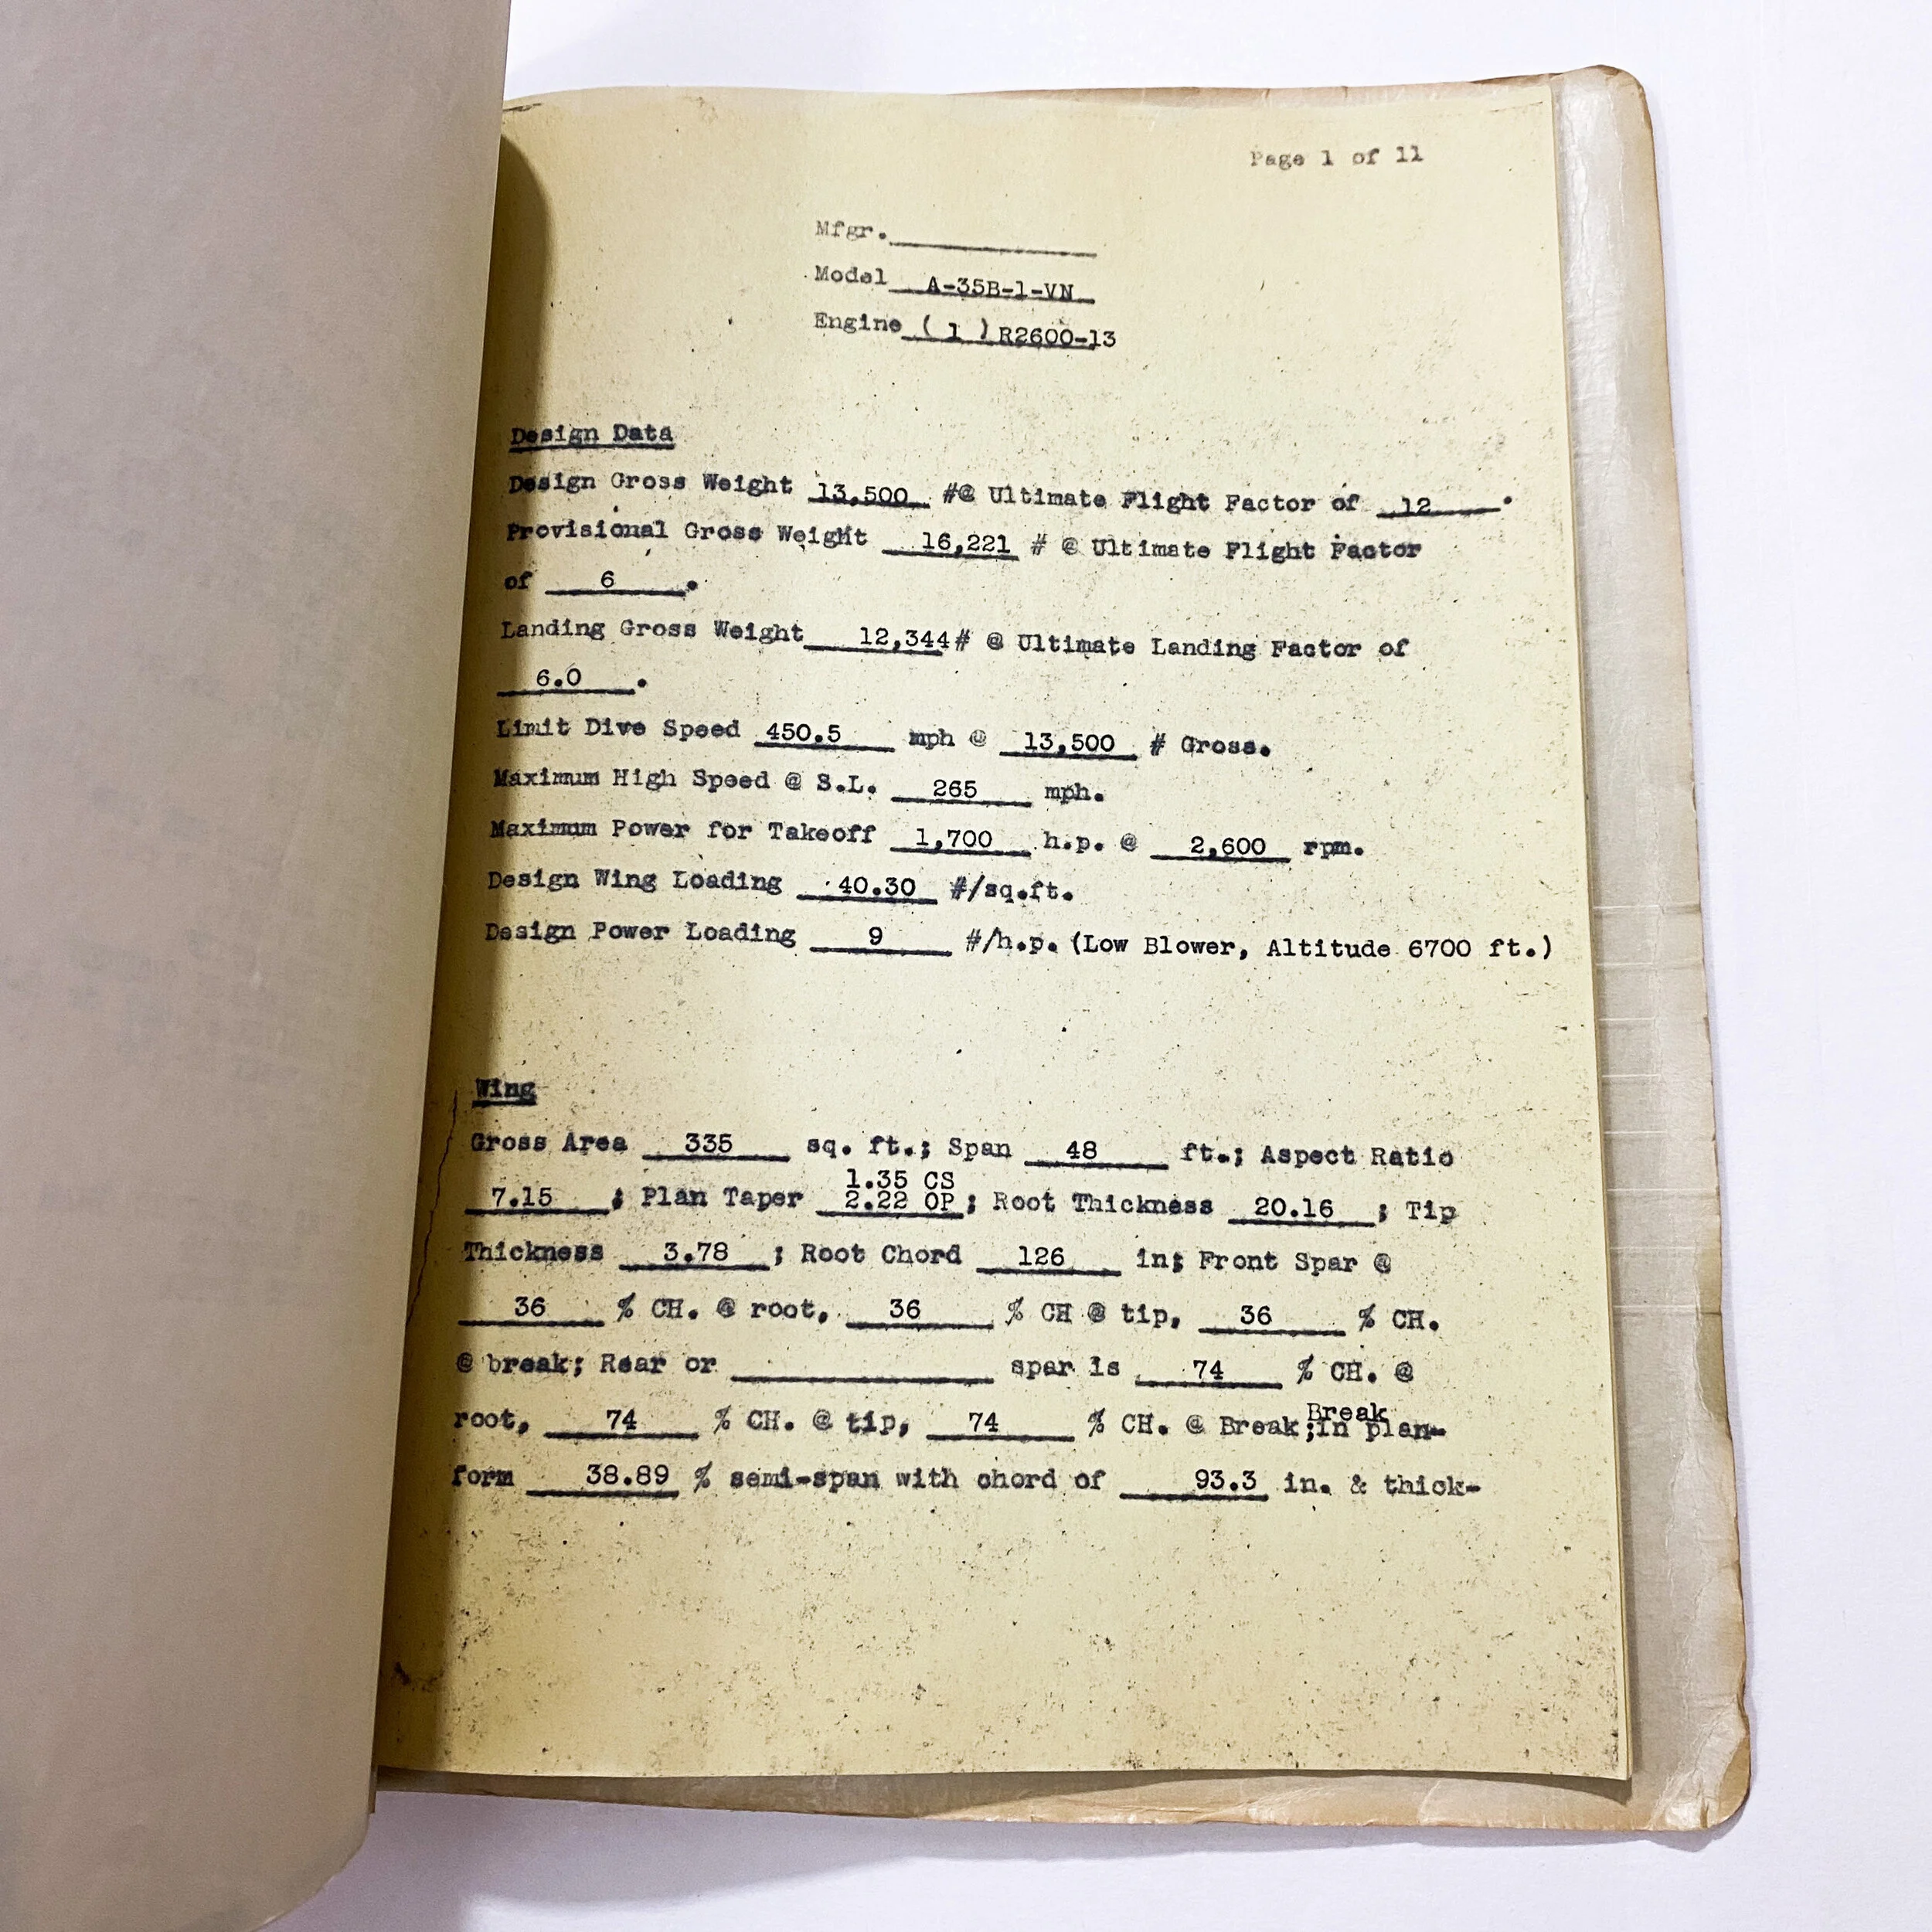 Page 1 of 11
Mfgr.
Model A-35B-1-VN
Engine ( 1 ) R2600-13
Design Data
Design Gross Weight 13,500 #@ Ultimate Flight Factor of 12 .
Provisional Gross Weight 16,221 # @ Ultimate Flight Factor
of 6 .
Landing Gross Weight 12,344# @ Ultimate Landing Factor of
6.0 .
Limit Dive Speed 450.5 mph @ 13,500 # Gross.
Maximum High Speed @ S.L. 265 mph.
Maximum Power for Takeoff 1,700 h.p. @ 2,600 rpm.
Design Wing Loading 40.30 #/sq.ft.
Design Power Loading 9 #/h.p. (Low Blower, Altitude 6700 ft.)
Wing
Gross Area 335 sq. ft.; Span 48 ft.; Aspect Ratio
1.35 CS
7.15 ; Plan Taper 2.22 OP; Root Thickness 20.16 ; Tip
Thickness 3.78 ; Root Chord 126 in; Front Spar @
36 % CH. @ root, 36 % CH @ tip, 36 % CH.
@ break; Rear or spar is 74 % CH. @
Break
root, 74 % CH. @ tip, 74 % CH. @ Break;in plan-
form 38.89 % semi-span with chord of 93.3 in. & thick-